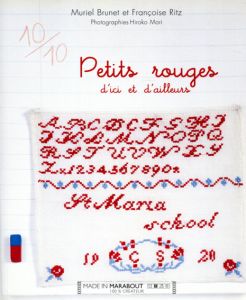 Muriel Brunet et Françoise Ritz
Photographies Hiroko Mori
10/10
Petits rouges
d'ici et d'ailleurs
ABCDEFGHIJ
KLMNOPQ
RSTUVWXY
Zx1234567890x
St Maria
school
19 CS 20
MADE IN MARABOUT
100% CREATEUR